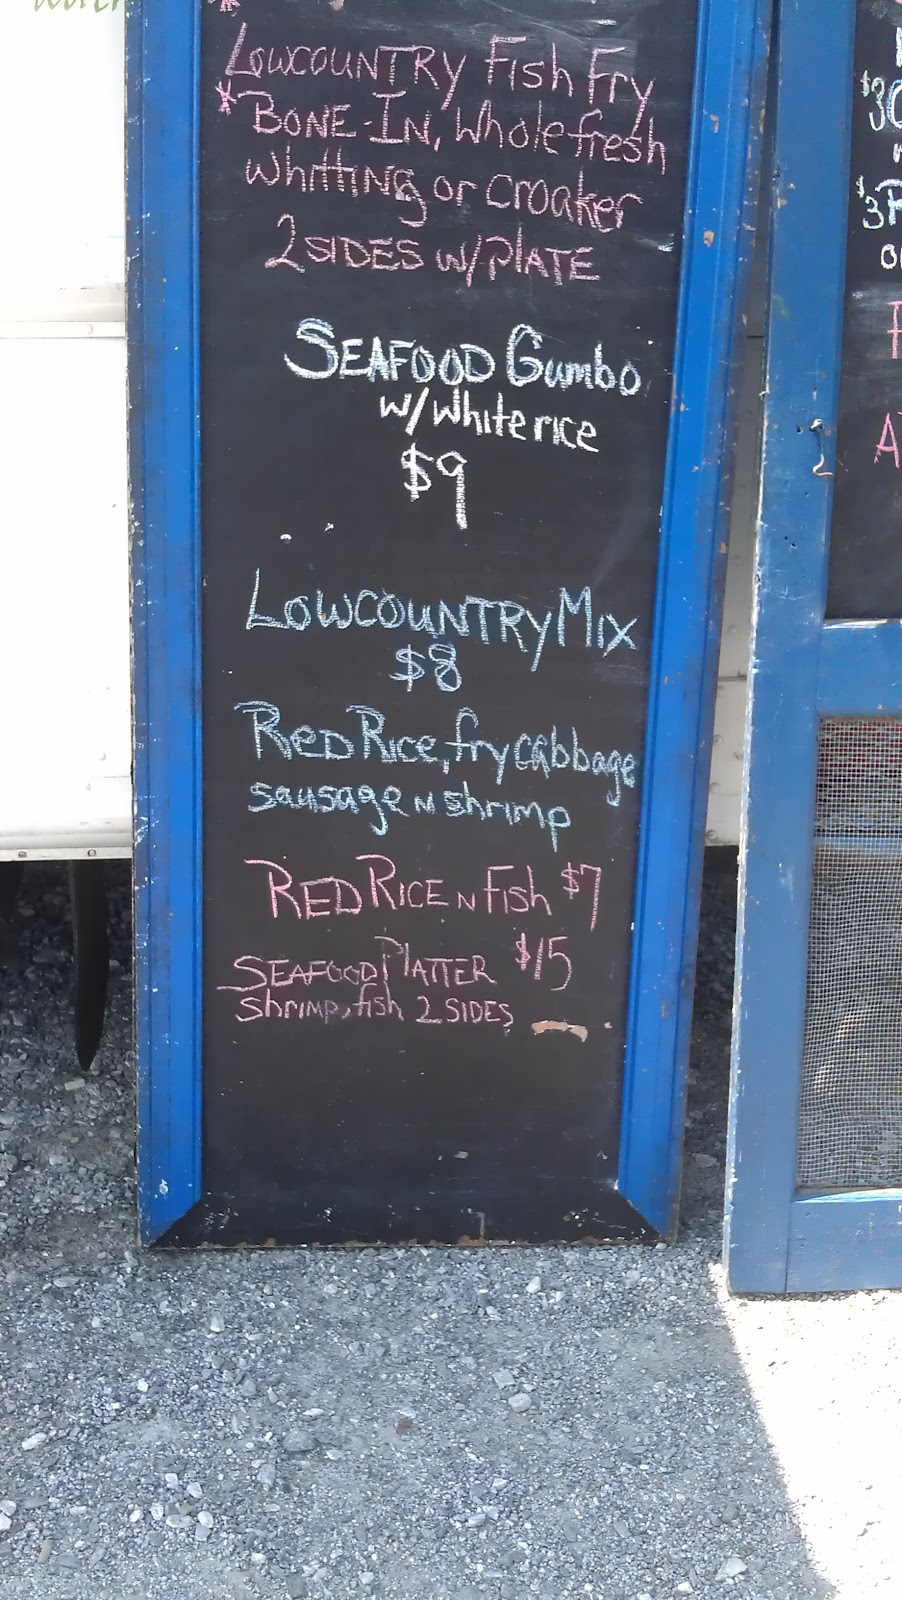 Lowcountry Fish Fry
* Bone-In, Whole fresh
Whitting or Croaker
2 SIDES w/ PLATE
SEAFOOD Gumbo
w/ White rice
$9
LOWCOUNTRY Mix
$8
Red Rice, fry cabbage
sausage n shrimp
RED RICE N Fish $7
SEAFOOD PLATTER $15
Shrimp, fish 2 SIDES
$3
$3